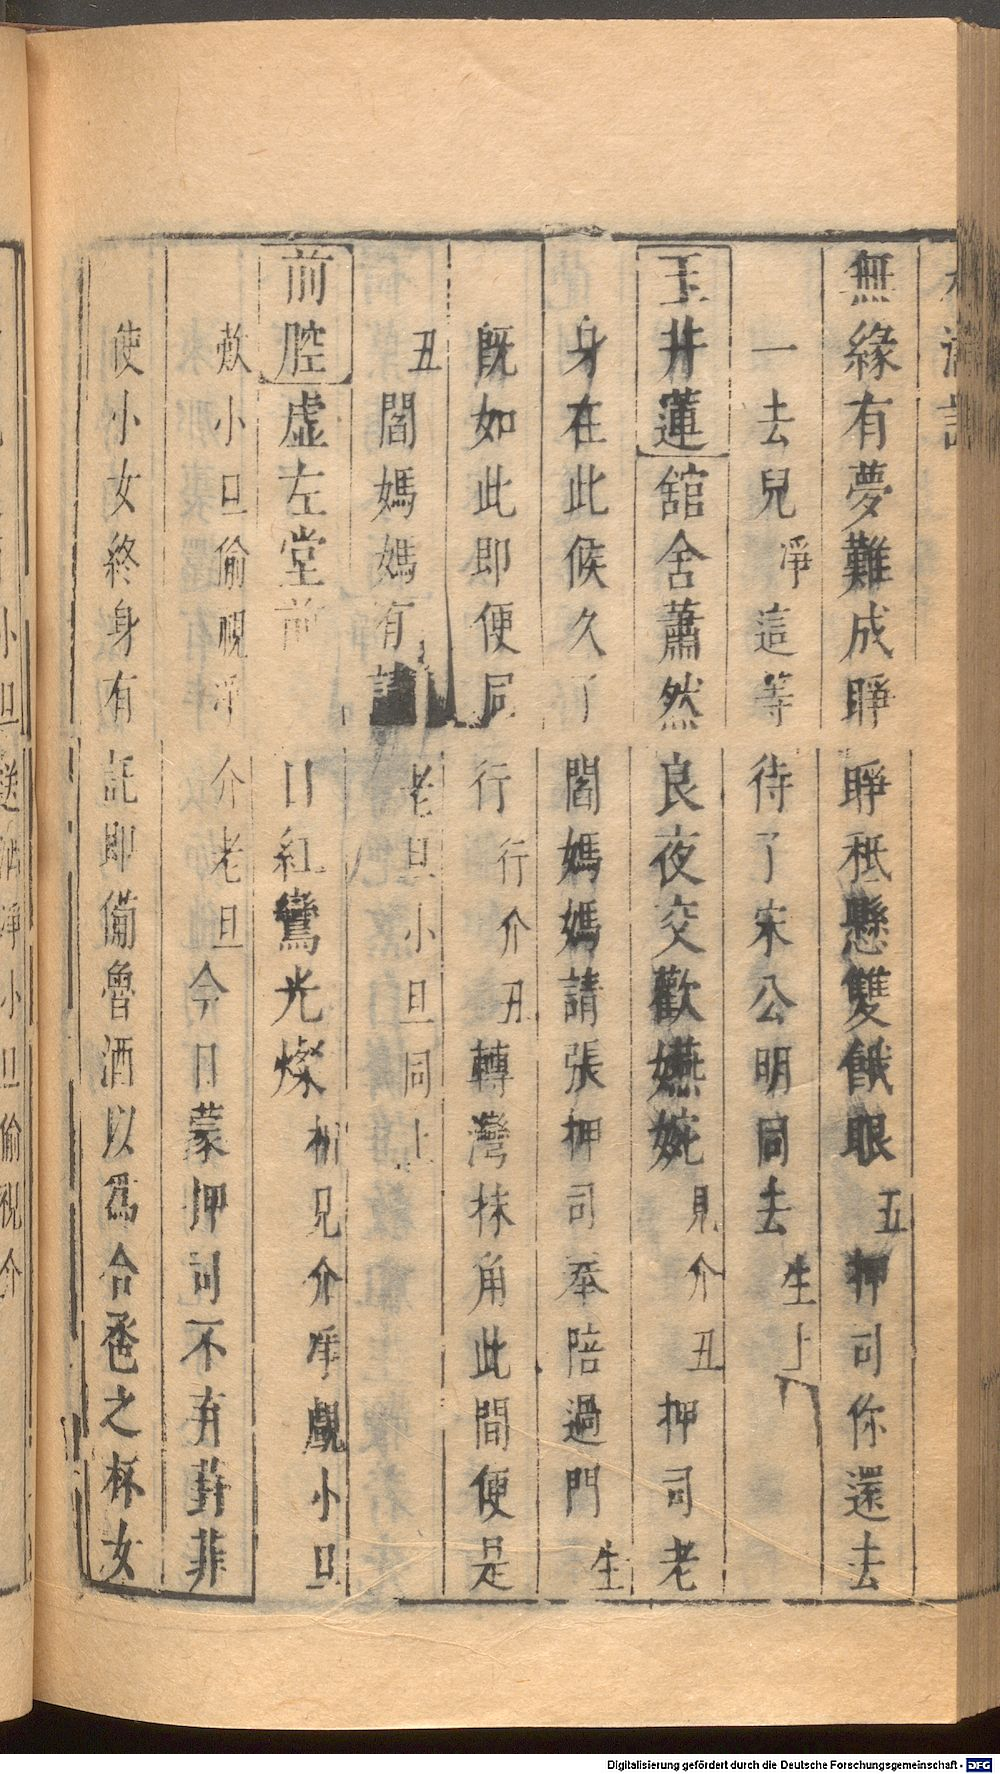 無緣有夢難成睜睜秪懸雙餓眼丑押司你還去
一去兒淨這等待了宋公明同去生上
玉井蓮舘舍蕭然良夜交歡嬿婉見介丑押司老
身在此候久了閻媽媽請張押司奉陪過門生
旣如此即便同行行介丑轉灣抹角此間便是
丑閻媽媽有請老旦小旦同上
前腔虛左堂前日紅鸞光燦相見介淨覷小旦
小旦偷視淨介老旦今日蒙押司不弃葑菲
使小女終身有託即備魯酒以爲合巹之杯女
小旦送酒淨小旦偷視介
Digitalisierung gefördert durch die Deutsche Forschungsgemeinschaft - DFG